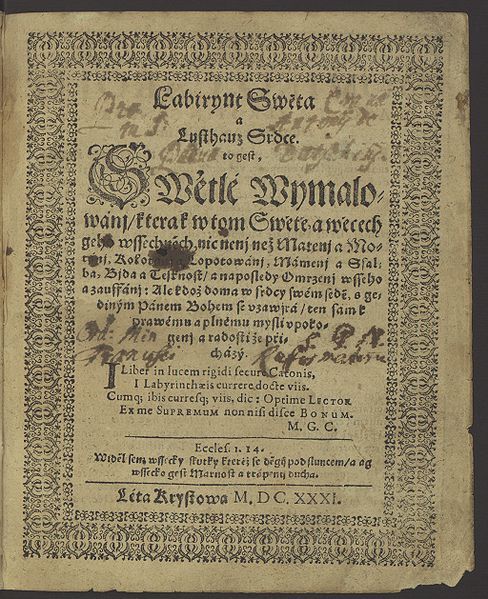 Labirynt Swěta
a
Lusthauz Srdce.
to gest,
Swětlé Wymalo-
wánj / kterak w tom Swětě, a wěcech
geho wssechněch, nic nenj než Matenj a Mo-
Kolotánj a Lopotowánj, Mámenj a Ssal-
ba, Bjda a Teskność / a naposledy Omrzenj wsseho
a zauffánj: Ale kdož doma w srdcy swém sedě, s ge-
diným Pánem Bohem se vzawjrá / ten sám k
prawému a plnému mysli vpoko-
genj a radosti že při-
cházý.
I Liber in lucem rigidi secure Catonis,
I Labyrinthæis currere docte viis.
Cumq; ibis curresq; viis, dic: Optime LECTOR
Ex me SUPREMUM non nisi disce BONUM.
M. G. C.
Eccles. 1. 14.
Widěl sem wssecky skutky kteréž se děgij pod sluncem / a ag
wssecko gest Marnost a trápenij ducha.
Léta Krystowa M, DC. XXXI.